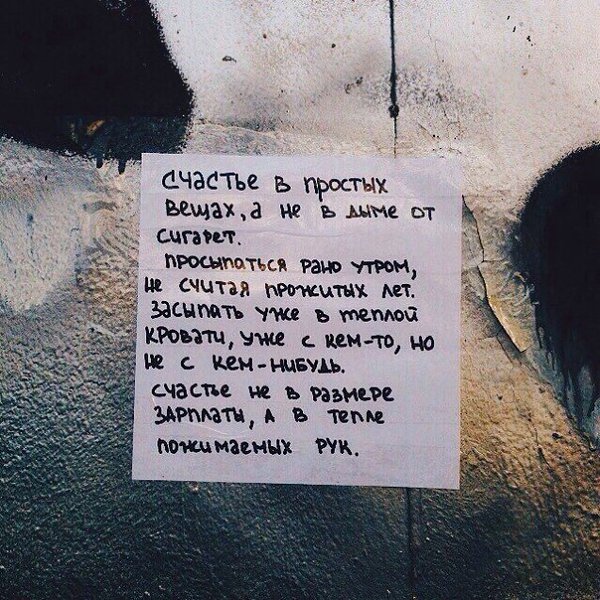 Счастье в простых
вещах, а не в дыме от
сигарет.
Просыпаться рано утром,
не считая прожитых лет.
Засыпать уже в теплой
кровати, уже с кем-то, но
не с кем-нибудь.
счастье не в размере
зарплаты, а в тепле
пожимаемых рук.